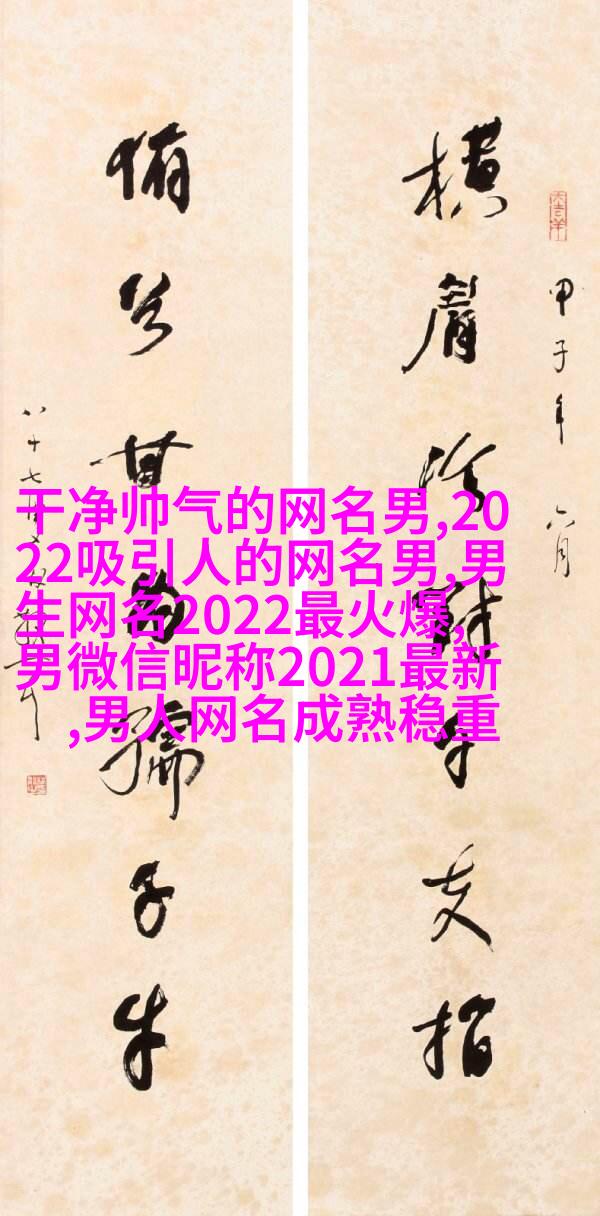 干净帅气的网名男,20
22吸引人的网名男,男
生网名2022最火爆,
男微信昵称2021最新
,男人网名成熟稳重
甲子年六月
横眉冷对千夫指
俯首甘为孺子牛
八十七